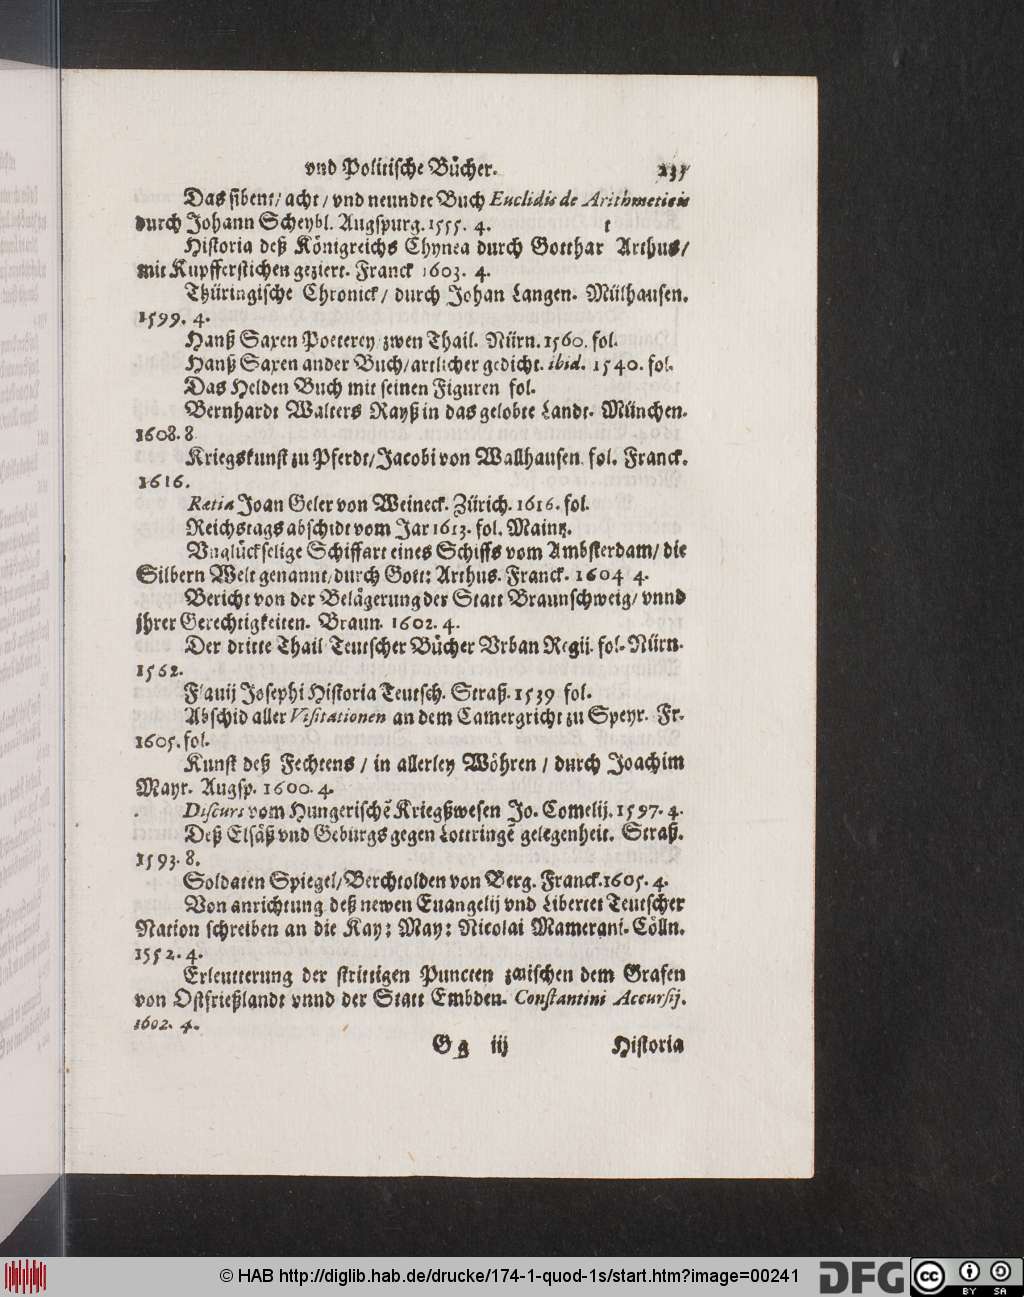 vnd Politische Bücher. 235
Das sibent/ acht / vnd neundte Buch Euclidis de Arithmeticis
durch Johann Scheybl. Augspurg. 1555. 4. t
Historia deß Königreichs Chynea durch Gotthar Arthus/
mit Kupfferstichen geziert. Franck 1603. 4.
Thüringische Chronick / durch Johan Langen. Mülhausen.
1599. 4.
Hanß Saxen Poeterey zwen Thail. Nürn. 1560. fol.
Hanß Saxen ander Buch/ artlicher gedicht. ibid. 1540. fol.
Das Helden Buch mit seinen Figuren fol.
Bernhardt Walters Rayß in das gelobte Landt. München.
1608. 8
Kriegskunst zu Pferdt/ Jacobi von Wallhausen. fol. Franck.
1616.
Rætia Joan Geler von Weineck. Zürich. 1616. fol.
Reichstags abschidt vom Jar 1613. fol. Maintz.
Vnglückselige Schiffart eines Schiffs vom Ambsterdam/ die
Silbern Welt genannt/ durch Gott: Arthus. Franck. 1604 4.
Bericht von der Belägerung der Statt Braunschweig/ vnnd
jhrer Gerechtigkeiten. Braun. 1602. 4.
Der dritte Thail Teutscher Bücher Vrban Regij. fol. Nürn.
1562.
Flauij Josephi Historia Teutsch. Straß. 1539 fol.
Abschid aller Visitationen an dem Camergricht zu Speyr. Fr.
1605. fol.
Kunst deß Fechtens / in allerley Wöhren / durch Joachim
Mayr. Augsp. 1600. 4.
Discurs vom Hungerischē Kriegßwesen Jo. Comelij. 1597. 4.
Deß Elsäß vnd Gebürgs gegen Lottringē gelegenheit. Straß.
1593. 8.
Soldaten Spiegel/ Berchtolden von Berg. Franck. 1605. 4.
Von anrichtung deß newen Euangelij vnd Libertet Teutscher
Nation schreiben an die Kay: May: Nicolai Mamerani. Cölln.
1552. 4.
Erleutterung der strittigen Puncten zwischen dem Grafen
von Ostfrießlandt vnnd der Statt Embden. Constantini Accursij.
1602. 4.
G g iij Historia
© HAB http://diglib.hab.de/drucke/174-1-quod-1s/start.htm?image=00241
DFG
cc BY SA